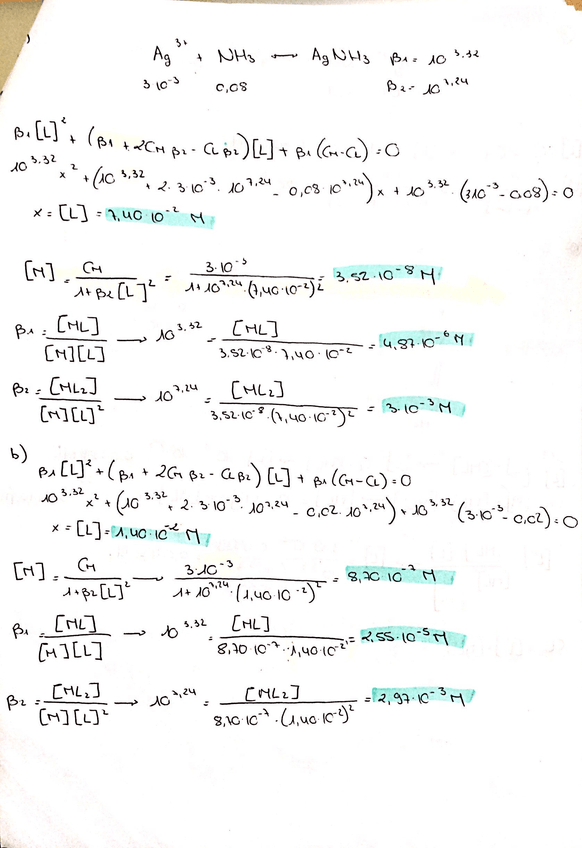 )
Ag³⁺ + NH3 — AgNH3 β1 = 10^3.32
3 10⁻³ 0,08 β2 = 10^7,24
β1[L]² + (β1 + 2CM β2 - CL β2)[L] + β1(CM-CL) = 0
10^3,32 x² + (10^3,32 + 2·3 10⁻³·10^7,24 - 0,08·10^7,24)x + 10^3,32·(3·10⁻³-0,08) = 0
x = [L] = 7,40·10⁻² M
[M] = CM / 1+β2[L]² = 3·10⁻³ / 1+10^7,24·(7,40·10⁻²)² = 3,52·10⁻⁸ M
β1 = [ML] / [M][L] → 10^3,32 = [ML] / 3,52·10⁻⁸·7,40·10⁻² = 4,87·10⁻⁶ M
β2 = [ML2] / [M][L]² → 10^7,24 = [ML2] / 3,52·10⁻⁸·(7,40·10⁻²)² = 3·10⁻³ M
b)
β1[L]² + (β1 + 2CM β2 - CL β2)[L] + β1(CM-CL) = 0
10^3,32 x² + (10^3,32 + 2·3·10⁻³·10^7,24 - 0,02·10^7,24) + 10^3,32 (3·10⁻³-0,02) = 0
x = [L] = 1,40·10⁻² M
[M] = CM / 1+β2[L]² → 3·10⁻³ / 1+10^7,24·(1,40·10⁻²)² = 8,70·10⁻⁷ M
β1 = [ML] / [M][L] → 10^3,32 = [ML] / 8,70·10⁻⁷·1,40·10⁻² = 2,55·10⁻⁵ M
β2 = [ML2] / [M][L]² → 10^7,24 = [ML2] / 8,70·10⁻⁷·(1,40·10⁻²)² = 2,97·10⁻³ M